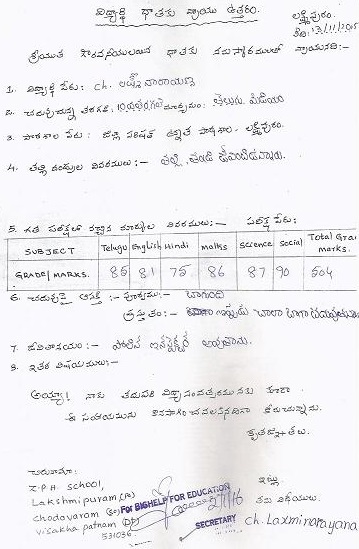 విద్యార్థి దాతకు వ్రాయు ఉత్తరం.
లక్ష్మీపురం.
తేది: 13/11/2015
శ్రీయుత గౌరవనీయులయిన దాతకు నమస్కారములతో వ్రాయునది:-
1. విద్యార్థి పేరు: ch. లక్ష్మీనారాయణ
2. చదువుచున్న తరగతి, 10వ తరగతి మాధ్యమం: తెలుగు మీడియం
3. పాఠశాల పేరు: జిల్లా పరిషత్ ఉన్నత పాఠశాల. లక్ష్మీపురం.
4. తల్లి దండ్రుల వివరములు:- తల్లి, తండ్రి
5. గత పరీక్షలో వచ్చిన మార్కుల వివరములు:- పరీక్ష పేరు:
SUBJECT Telugu English Hindi maths science social Total Gra marks.
GRADE/MARKS. 85 81 75 86 87 90 504
6. చదువుపై ఆసక్తి :- పూర్వము:- బాగుంది
ప్రస్తుతం:- ఇప్పుడు చాలా బాగా
7. జీవితాశయం:- పోలీస్ ఇన్స్పెక్టర్ అవుతాను.
8. ఇతర విషయములు:-
అయ్యా! నాకు తదుపరి విద్యాసంవత్సరమునకు కూడా
ఈ సహాయమును కొనసాగించవలసినదిగా కోరుచున్నాను.
కృతజ్ఞతలు.
చిరునామా:
Z.P.H. SCHOOL,
Lakshmipuram,
chodavaram
visakha patnam (Dt)
531036.
For BIGHELP FOR EDUCATION
SECRETARY
ఇట్లు
తమ విధేయులు.
ch. Laxminarayana